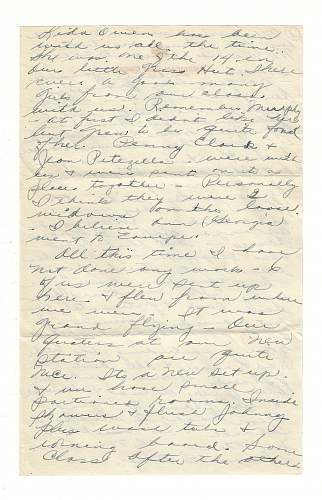 Leida Owen has been
with us all the time.
She was one of the 14 in
our little Grass Hut. There
were a good many
girls from our class
with us. Remember Murphy
- at first I didn't like her
but grew to be quite fond
of her. Penny Clark &
Jean Petezella - were with
us & were sent on to a
place together - Personally
I think they were 2
widows on the loose.
- I believe Ann (Georgia)
went to Europe.
All this time I have
not done any work - 6
of us were sent up
here - & flew from where
we were. It was
grand flying - Our
quarters at our new
station are quite
nice. Its a new set up.
& we have small
partioned rooms. Inside
showers & flush Johnny
plus wash tubs &
ironing board. Some
Class after the others